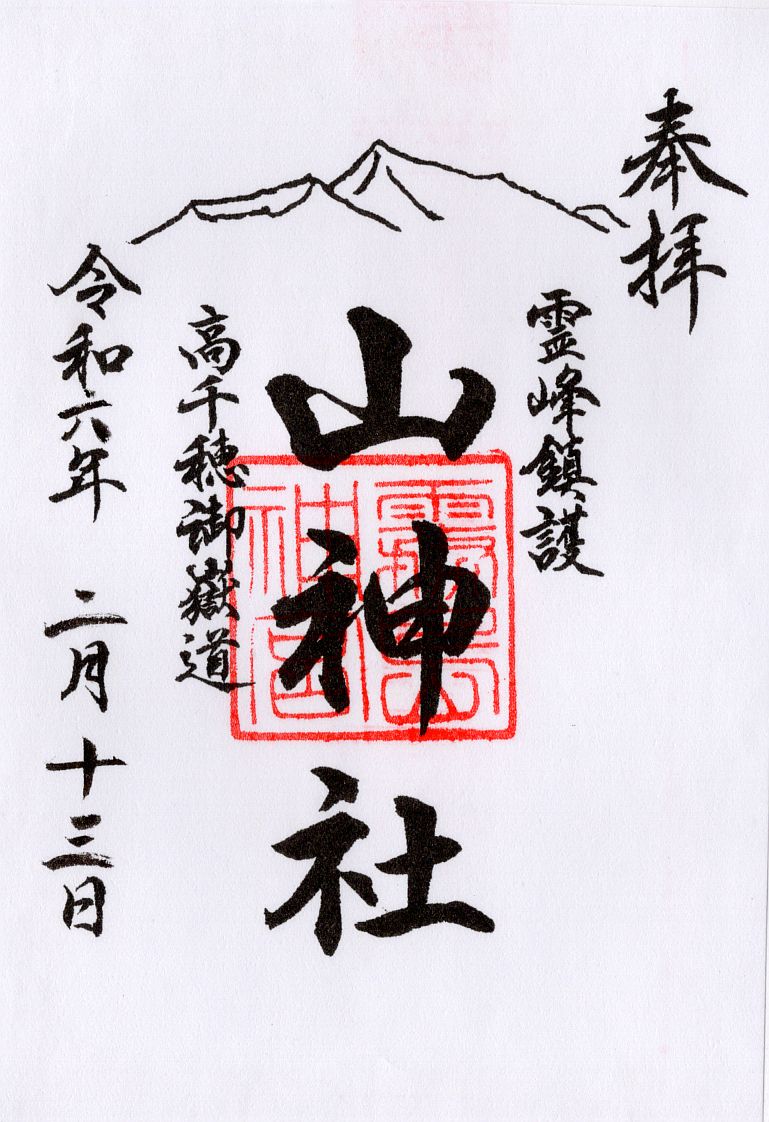 奉拝
霊峰鎮護
山神社
高千穂御嶽道
令和六年 二月十三日
霧島神宮